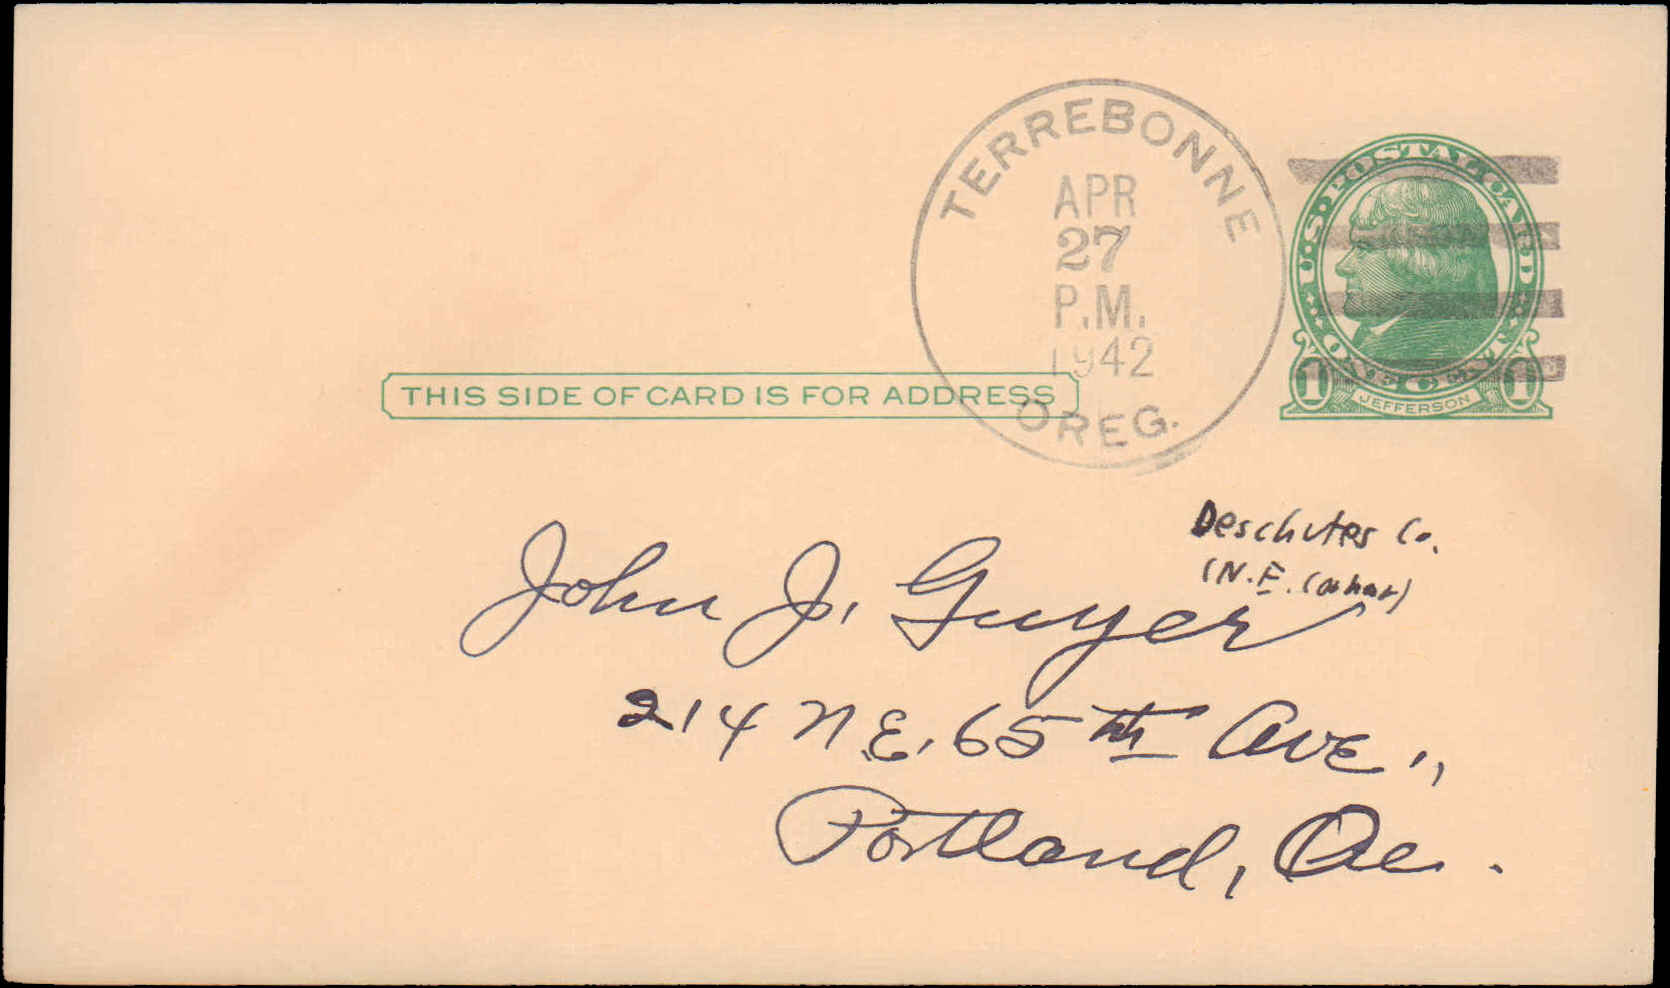 TERREBONNE
APR
27
P.M.
1942
OREG.
U·S·POSTAL CARD
ONE CENT
1 JEFFERSON 1
THIS SIDE OF CARD IS FOR ADDRESS
Deschutes Co.
(N.E. Corner)
John J. Guyer
214 N.E. 65th Ave.,
Portland, Ore.